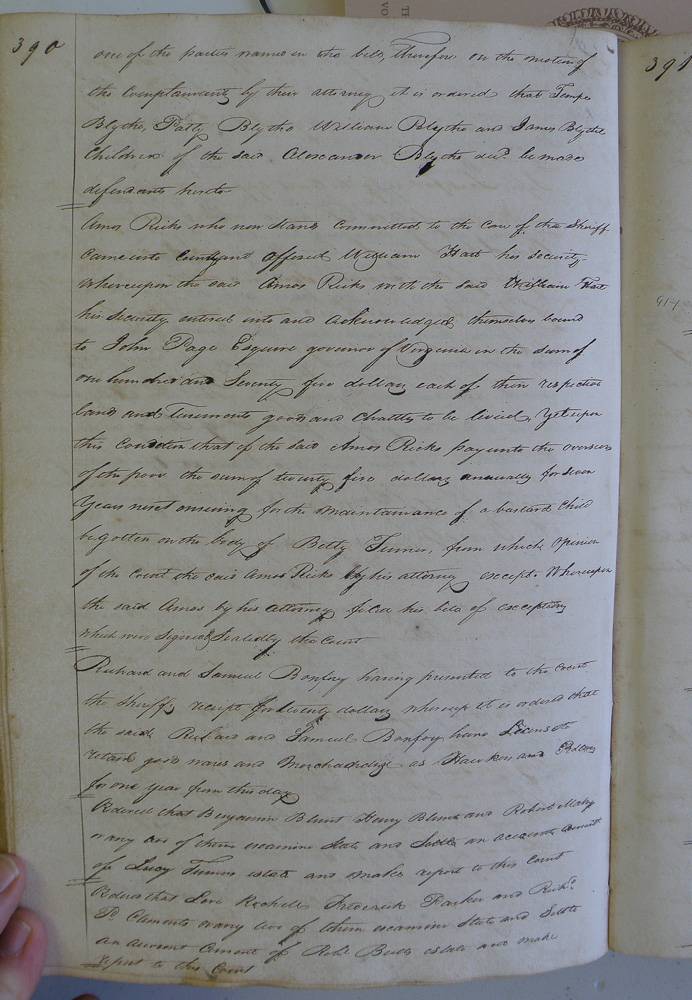 390
one of the parties named in the bill, therefore on the motion of
the Complainants by their attorney it is ordered that Tempe
Blythe, Patty Blythe William Blythe and James Blythe
Children of the said Alexander Blythe decd. be made
defendants hereto
Amos Ricks who now stands Committed to the Care of the Sheriff
Came into Court and offered William Hart his security
whereupon the said Amos Ricks with the said William Hart
his Security entered into and acknowledged themselves bound
to John Page Esquire governor of Virginia in the sum of
one hundred and Seventy five dollars each of their respective
lands and Tenements goods and Chattles to be levied, Yet upon
this Condition that if the said Amos Ricks pay unto the overseers
of the poor the sum of twenty five dollars annually for seven
Years next ensuing for the maintainance of a bastard Child
begotten on the body of Betty Turner, from which opinion
of the Court the said Amos Ricks by his attorney except. Whereupon
the said Amos by his attorney filed his bill of exceptions
which was Signed & Sealed by the Court
Richard and Samuel Bonfoy having presented to the Court
the Sheriffs receipt for twenty dollars whereup it is ordered that
the said Richard and Samuel Bonfoy have License to
retail goods wares and Merchandize as Hawkers and Pedlars
for one year from this day
Ordered that Benjamin Blunt Henry Blunt and Robert
or any two of them examine State and Settle an account Current
of Lucy Turners estate and make report to this Court
Ordered that Levi Rochelle Frederick Parker and Richd.
P. Clements or any two of them examine State and Settle
an account Current of Robt. Butts estate and make
report to this Court
391